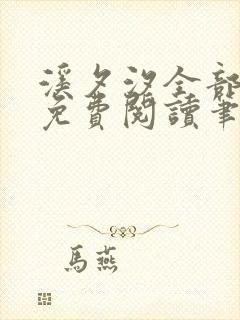 溪夕汐全部
免費閱讀筆
馬燕